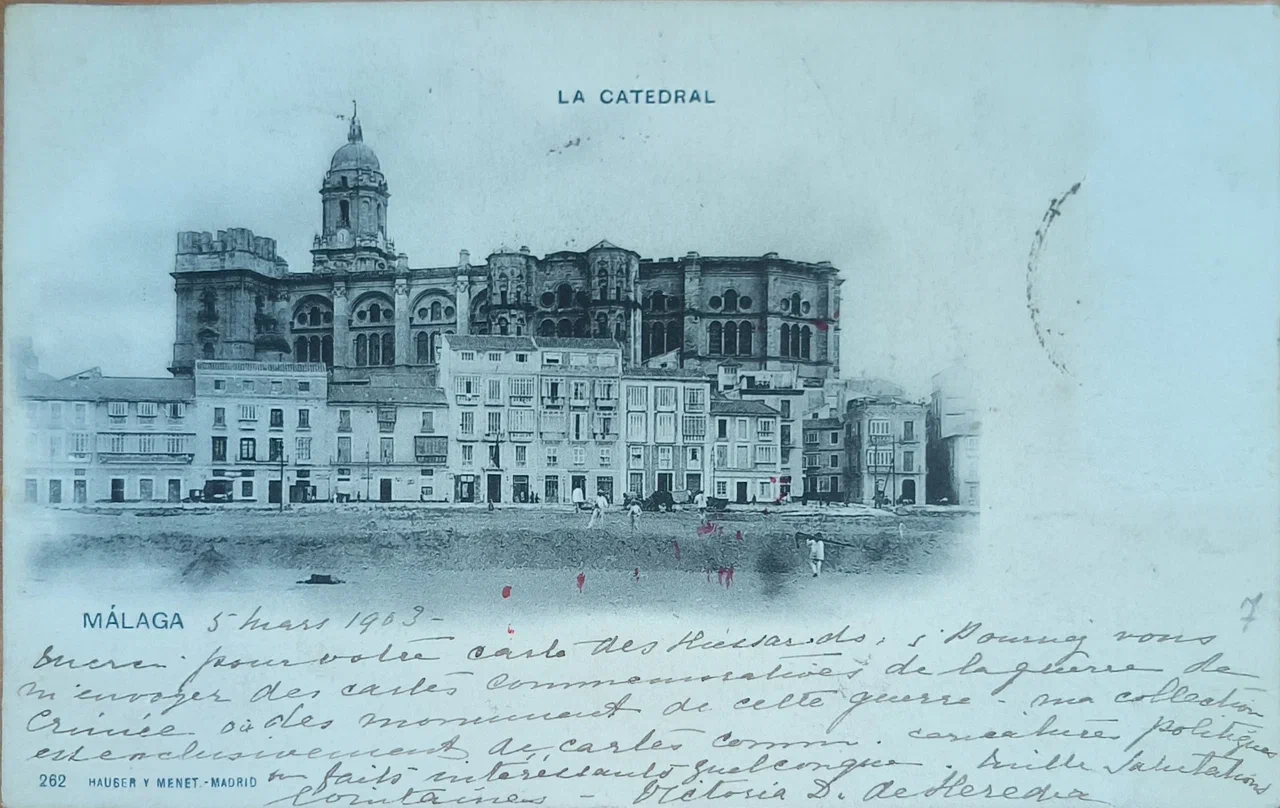 LA CATEDRAL
MÁLAGA 5 mars 1903 -
Merci pour votre carte des . Pourriez vous
m'envoyer des cartes commemoratives de la guerre de
Crimée où des monument de cette guerre - ma collection
est exclusivement de cartes comm. caricatures politiques
ou faits interessants quelconque. Mille Salutations
Lointaines - Victoria D. de Heredia
262 HAUSER Y MENET.-MADRID
7